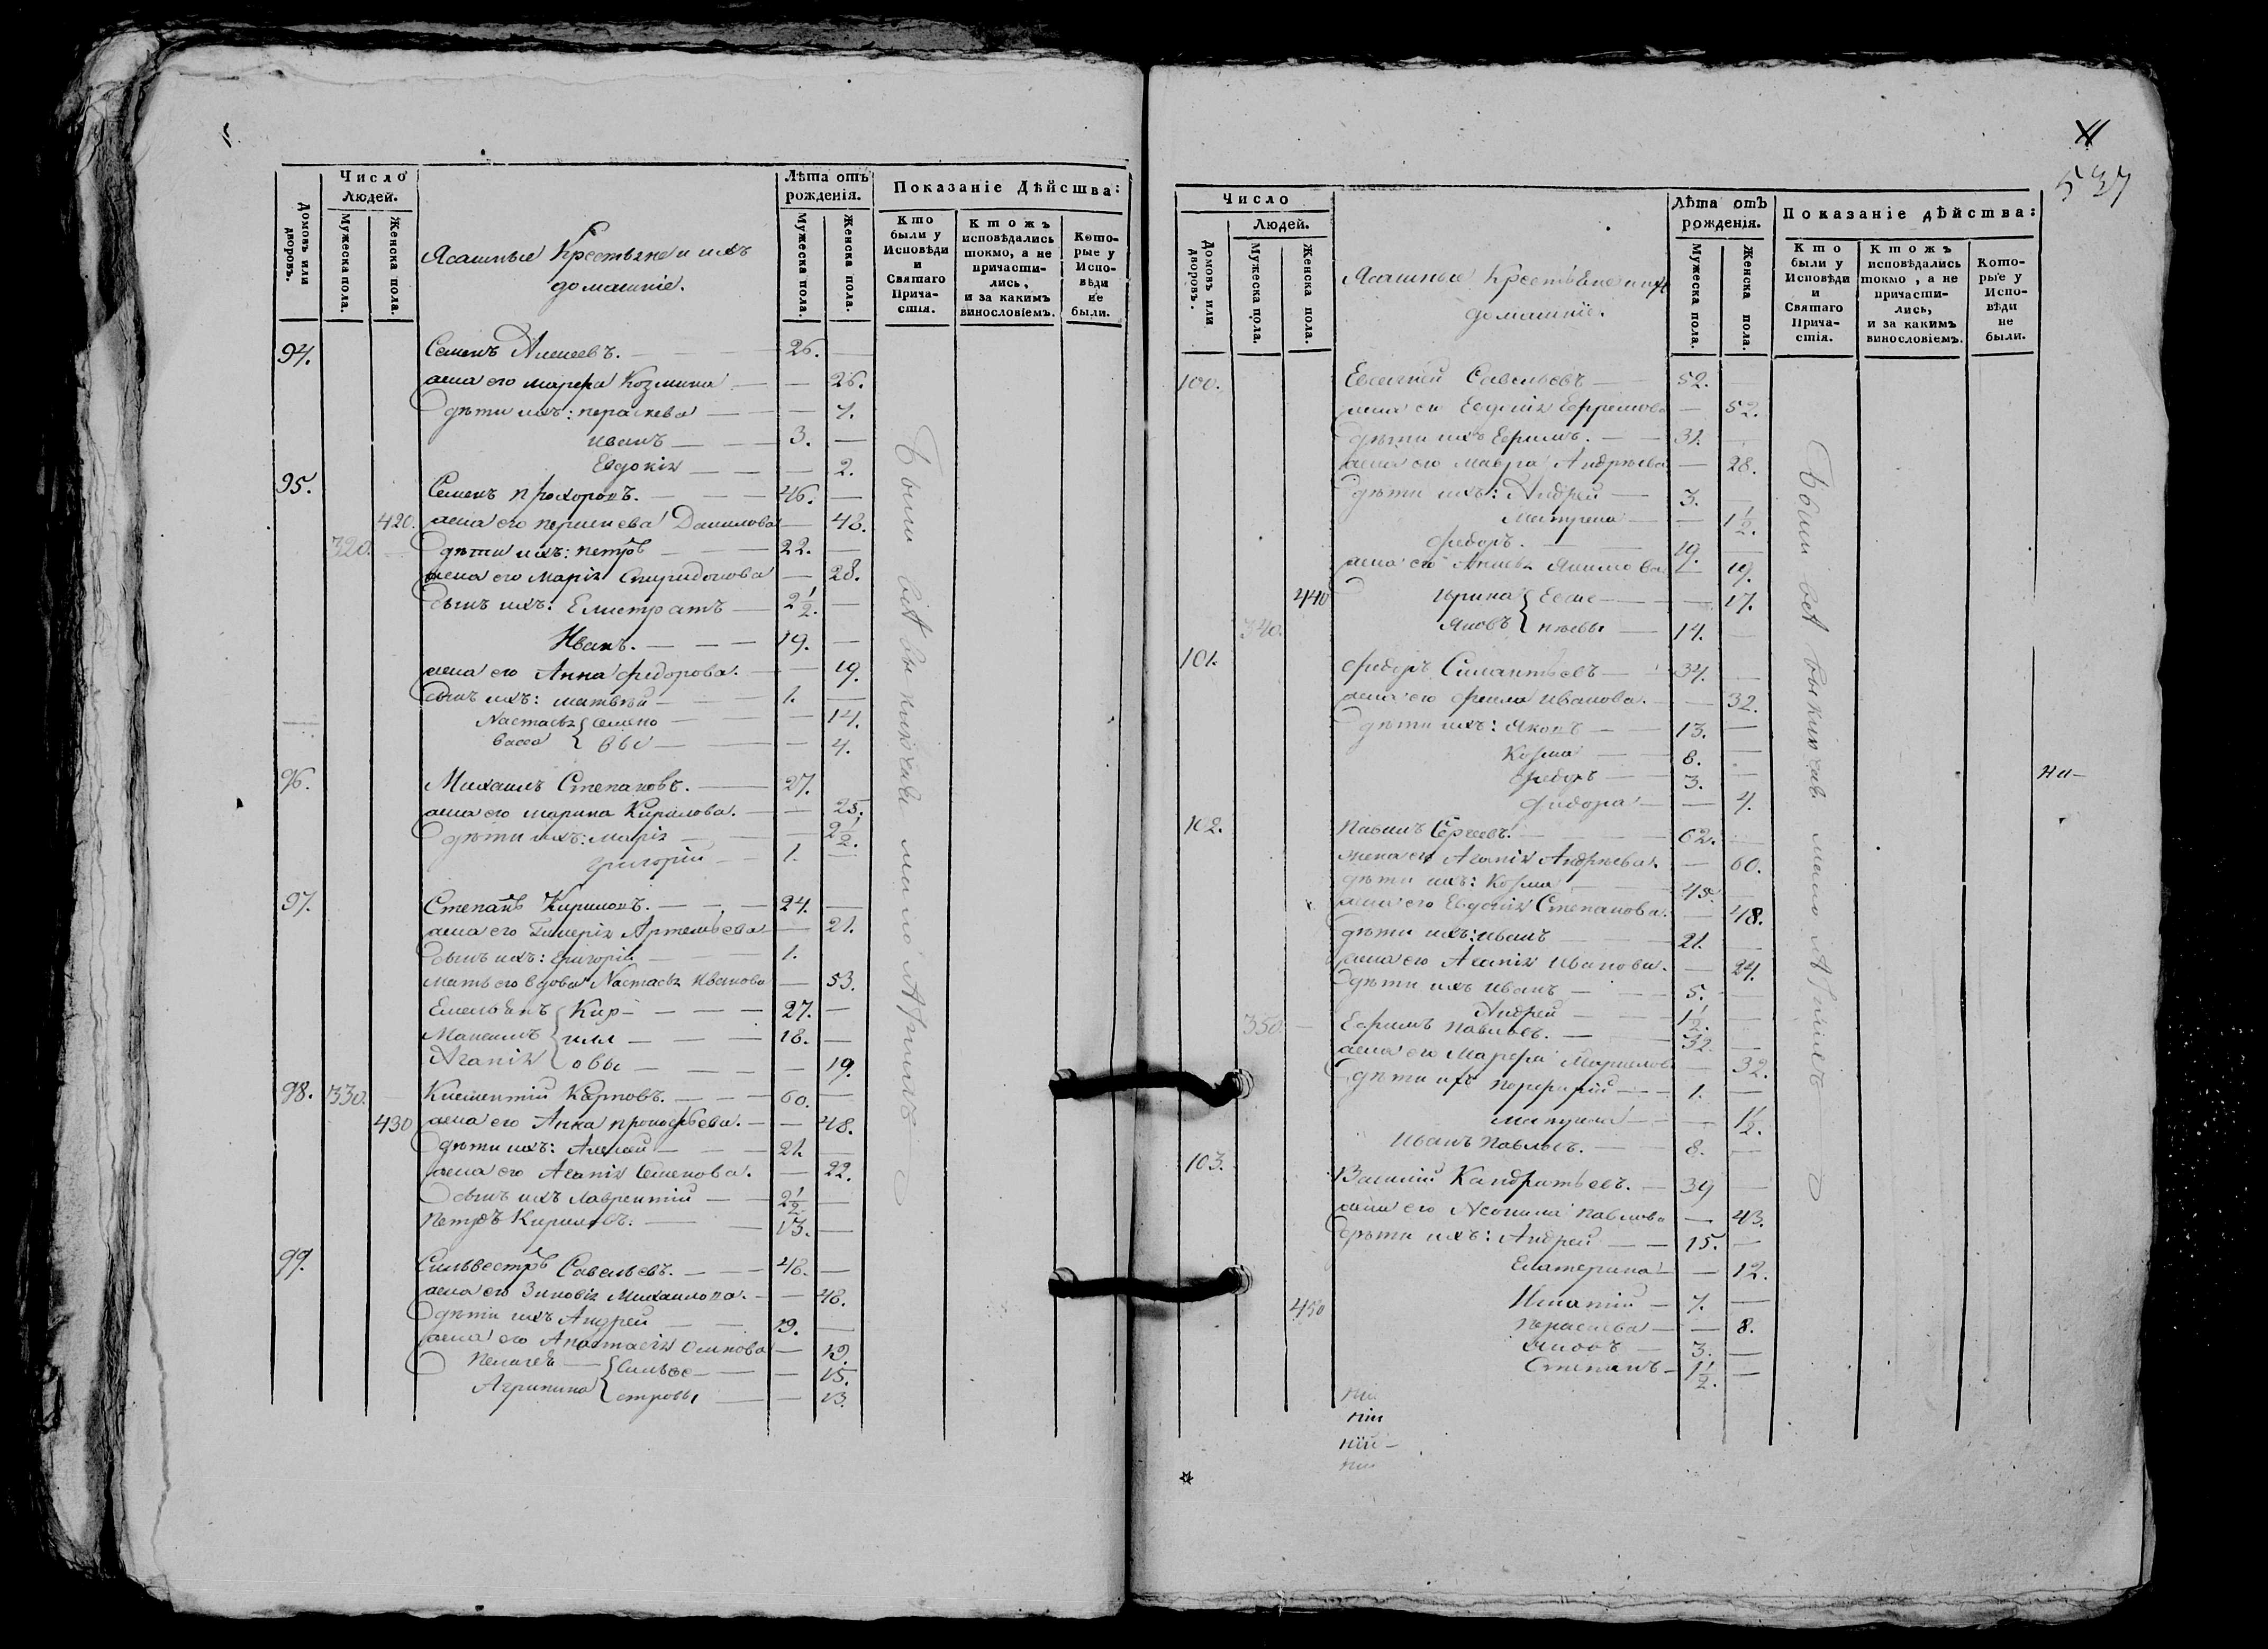 Число
Людей.
Домовъ или дворовъ.
Мужеска пола.
Женска пола.
Ясашные Крестьяне и ихъ
домашніе.
Лѣта отъ
рожденія.
Мужеска пола.
Женска пола.
Показаніе Дѣйства:
Кто
были у
Исповѣди
и
Святаго
Прича-
стія.
Ктожъ
исповѣдались
токмо, а не
причасти-
лись,
и за какимъ
винословіемъ.
Кото-
рые у
Испо-
вѣди
не
были.
94. Семенъ Алексеевъ. 26.
жена его марфа Козмина 26.
дѣти ихъ: параскева 7.
иванъ 3.
Евдокія 2.
95. Семенъ прохоровъ. 46.
420. жена его Данилова 48.
320. дѣти ихъ: петръ 22.
жена его Марія Спиридонова 28.
сынъ ихъ: Елистратъ 2 1/2.
Иванъ. 19.
жена его Анна федорова. 19.
сынъ ихъ: матвѣй 1.
Настасья семено 14.
васса вы 4.
96. Михаилъ Степановъ. 27.
жена его марина Кирилова. 25.
дѣти ихъ: марія 2 1/2.
григорій 1.
97. Степанъ Кириловъ. 24.
жена его Гликерія Артемьева 21.
сынъ ихъ: григорій 1.
мать его вдова Настасья Иванова 53.
Емельянъ Кир- 27.
18.
Агапія овы 19.
98. 330. Климентій Карповъ. 60.
430 жена его Анна прокофьева. 48.
дѣти ихъ: Алексей 21.
жена его Агапія семенова. 22.
сынъ ихъ лаврентій 2 1/2
петръ Кириловъ. 13.
99. Сильвестръ Савельевъ. 48.
жена его Зиновія михаилова. 48.
дѣти ихъ Андрей 19.
жена его Анастасія осипова 19.
Пелагея сильве- 15.
Агрипина стровы 13.
Были всѣ вы ключая мало
537
Число
Людей.
Домовъ или дворовъ.
Мужеска пола.
Женска пола.
Ясашные Крестьяне и ихъ
домашніе.
Лѣта отъ
рожденія.
Мужеска пола.
Женска пола.
Показаніе дѣйства:
Кто
были у
Исповѣди
и
Святаго
Прича-
стія.
Ктожъ
исповѣдались
токмо, а не
причасти-
лись,
и за какимъ
винословіемъ.
Кото-
рые у
Испо-
вѣди
не
были.
100. Савельевъ 52.
жена его Евдокія Ефремова 52.
дѣти ихъ Ефимъ. 31.
жена его мавра Андреева 28.
дѣти ихъ: Андрей 3.
Матрена 1 1/2.
федоръ. 19.
жена его Акимова 19.
440 ирина 17.
340. Яковъ 14.
101. федоръ Силантьевъ 34.
жена его фекла иванова. 32.
дѣти ихъ: Яковъ 13.
Козма 8.
федоръ 3.
федора 4.
102. павелъ Сергеевъ. 62.
жена его Агапія Андреева. 60.
дѣти ихъ: Козма 45.
жена его Евдокія Степанова. 48.
дѣти ихъ: иванъ 21.
жена его Агапія иванова. 24.
дѣти ихъ иванъ 5.
Андрей 1 1/2.
350. Ефимъ павловъ. 32.
жена его Марфа 32.
дѣти ихъ порфирій 1.
1/2.
иванъ павловъ. 8.
103. Василій Кандратьевъ. 39
жена его павлова 43.
дѣти ихъ: Андрей 15.
Екатерина 12.
450 Игнатій 7.
параскева 8.
яковъ 3.
Степанъ 1 1/2.
Были всѣ вы ключая мало
ни-